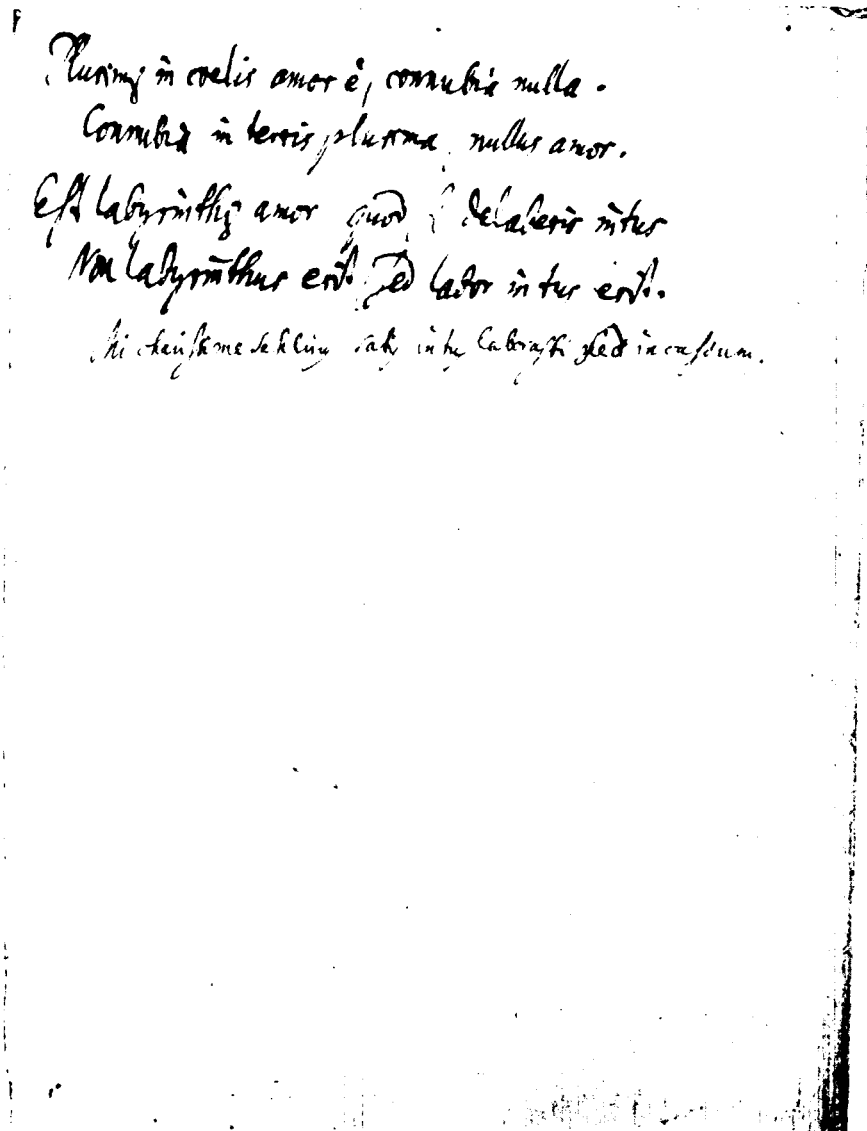 Plurimꝫ in coelis amor ē, connubia nulla.
Connubia in terris plurima, nullus amor.
Est labyrinthꝫ amor quod delaberis intus
Non labyrinthus erit sed labor intus erit.
Mi satꝫ intꝫ laborasti sed incassum.